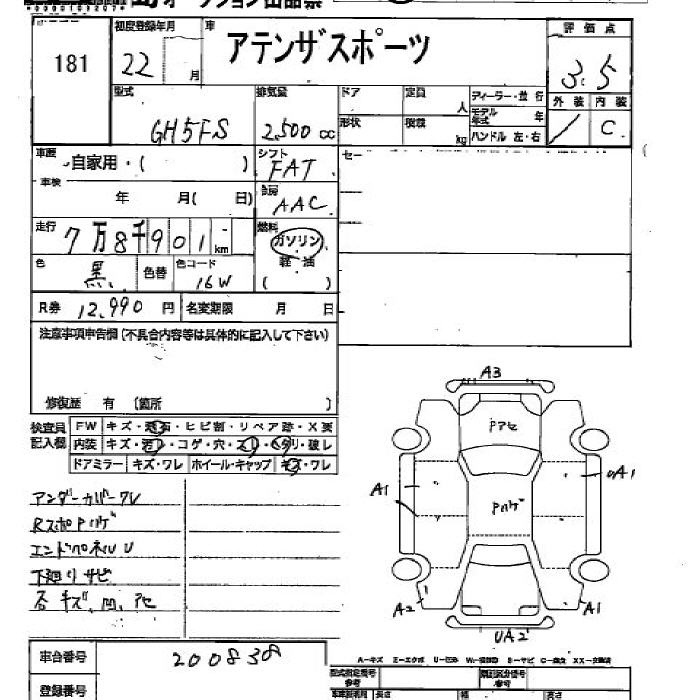 オークション出品票
181
初度登録年月
22 年 月
車
アテンザスポーツ
評価点
3.5
型式
GH5FS
排気量
2,500 cc
ドア
定員
人
形状
積載
kg
ディーラー・並行
モデル年式
年
ハンドル 左・右
外装
内装
C
車歴
自家用・( )
シフト
FAT
セー
車検
年 月( 日)
冷房
AAC
走行
7万8千901km
燃料
ガソリン
軽・油
( )
色
黒
色替
色コード
16W
R券 12,990 円
名変期限 月 日
注意事項申告欄(不具合内容等は具体的に記入して下さい)
修復歴 有 (箇所 )
検査員記入欄
FW キズ・飛石・ヒビ割・リペア跡・X要
内装 キズ・汚レ・コゲ・穴・スレ・ヘタリ・破レ
ドアミラー キズ・ワレ ホイール・キャップ キズ・ワレ
アンダーカバーワレ
RスポPハゲ
エンドパネルU
下廻りサビ
各キズ、凹、アセ
A3
Pアセ
A1
UA1
Pハゲ
A2
A1
UA2
車台番号
200838
登録番号
型式指定番号
参考
類別区分番号
参考
長さ
幅
高さ